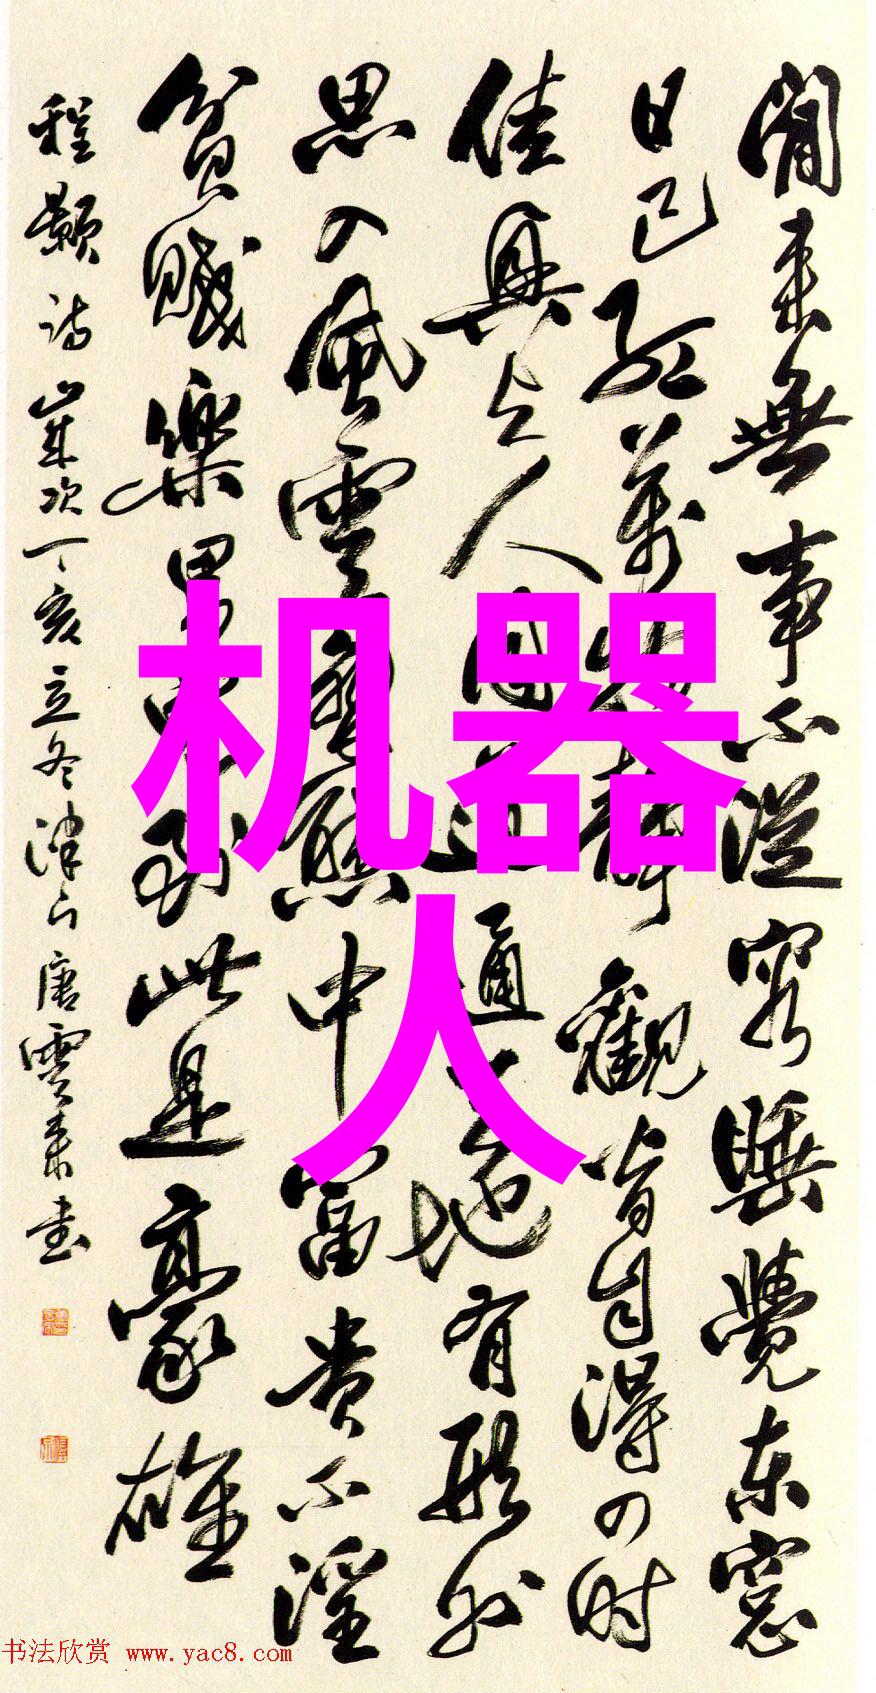 閒来無事不從容睡覺东窓
日已红萬物静觀皆自得四时
佳興与人同道通天地有形外
思入風雲變態中富贵不淫
贫賤樂男兒到此是豪雄
程颢诗歲次丁亥立冬津门唐雲来书
机器
人
书法欣赏 www.yac8.com